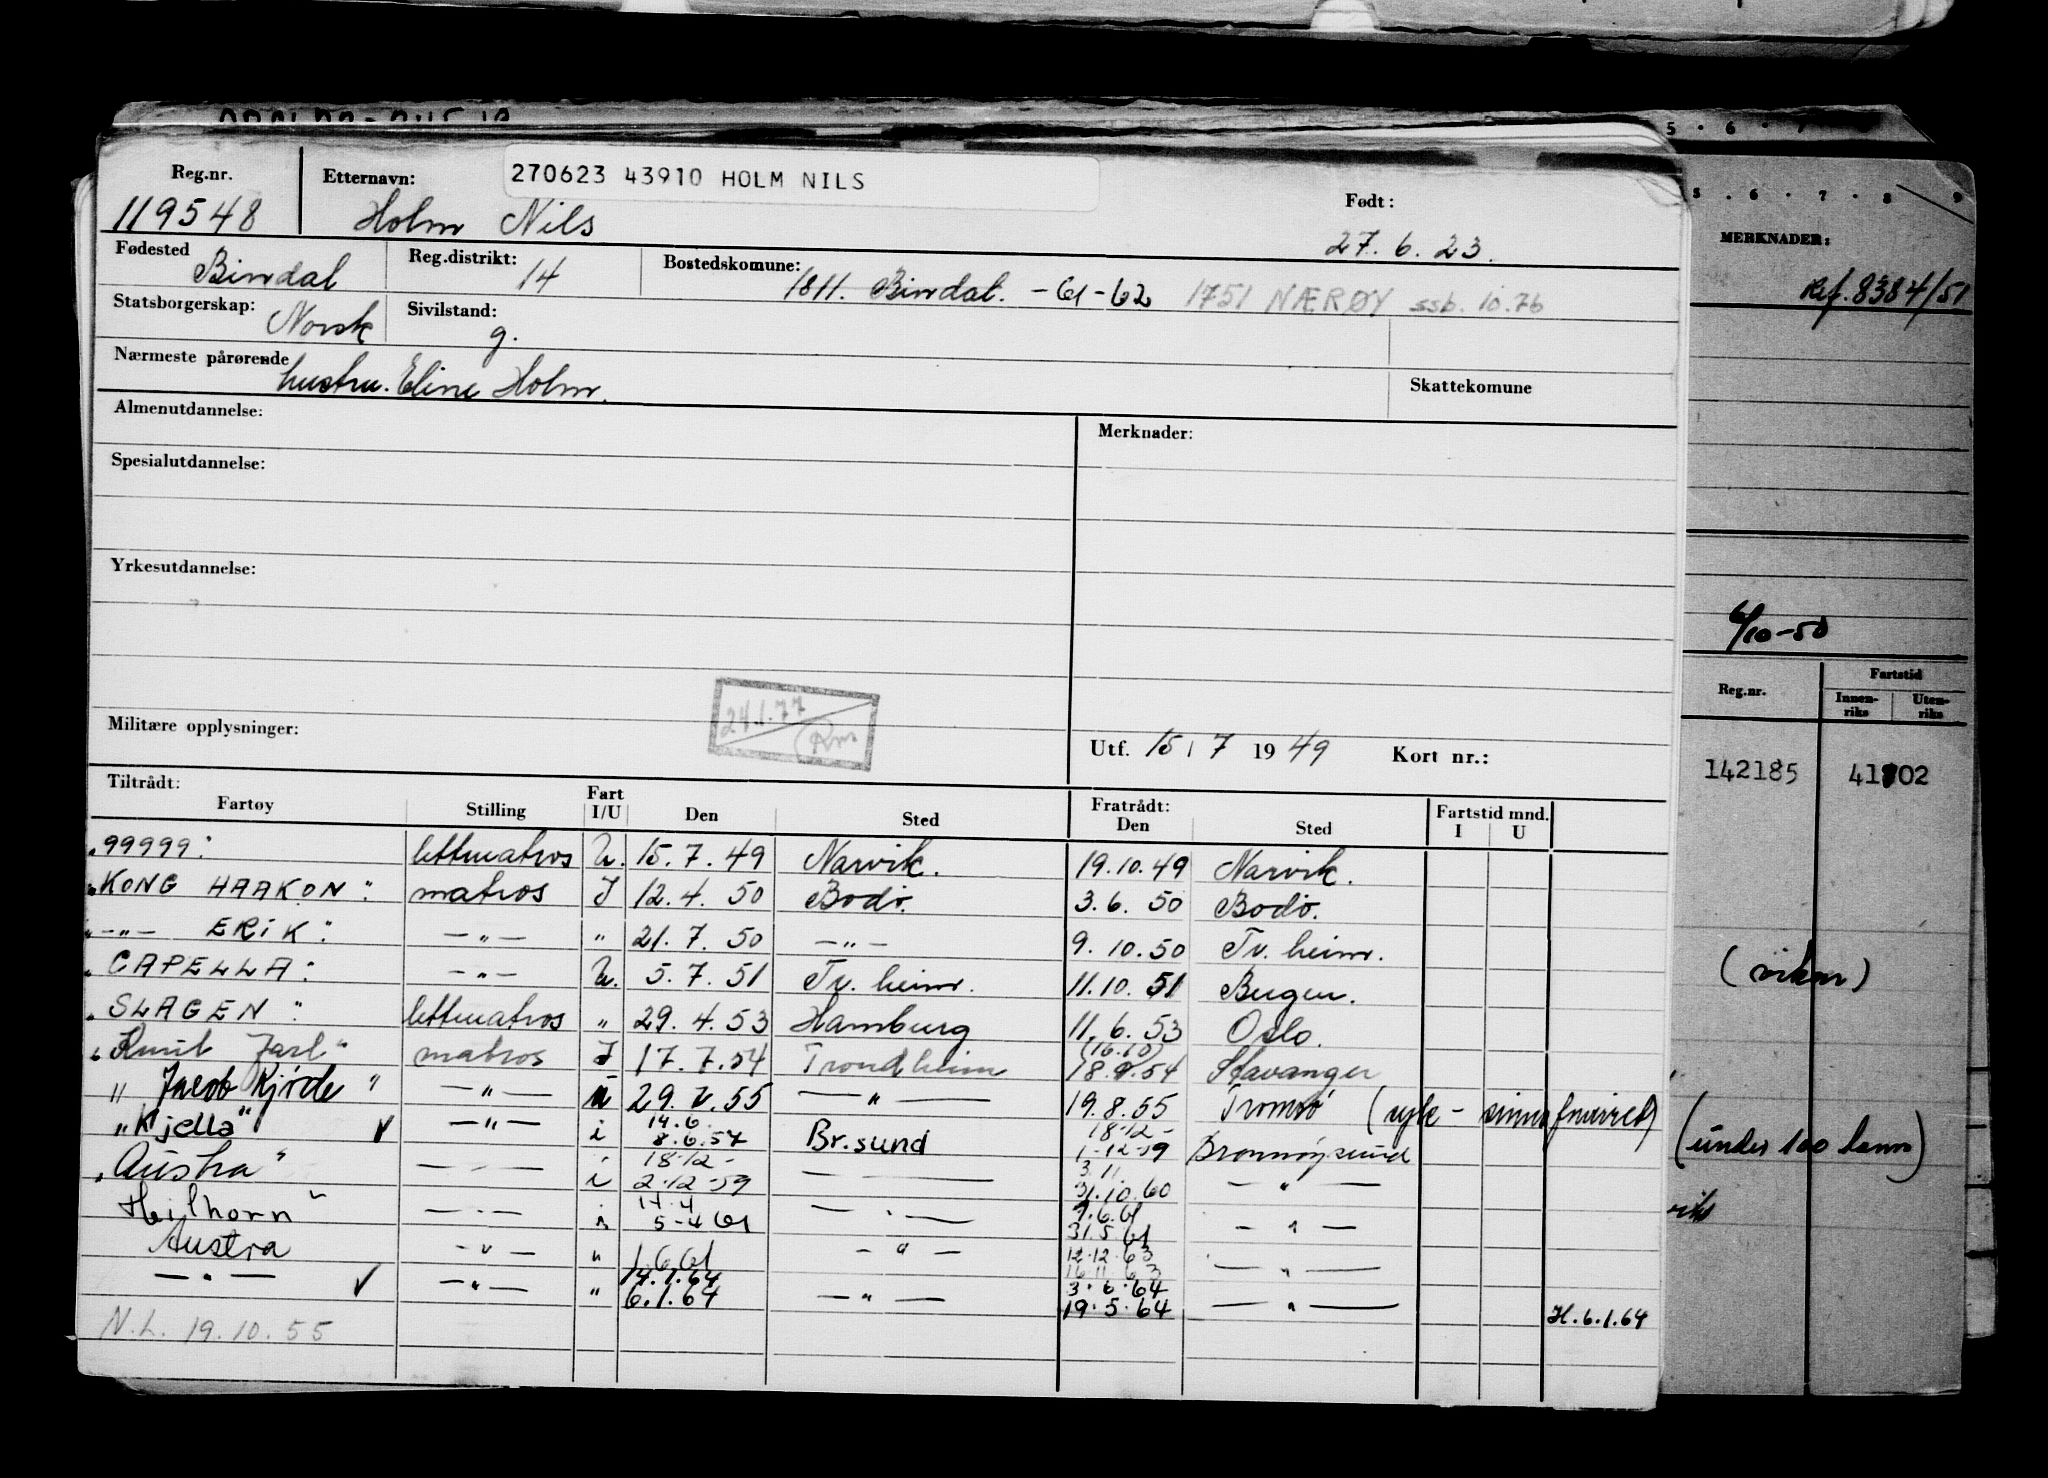 5 . 6 . 7
270623 43910 HOLM NILS
Reg.nr. Etternavn: Født:
119548 Holm Nils 27. 6. 23.
Fødested Bindal Reg.distrikt: 14 Bostedskomune: 1811. Bindal. -61-62 1751 NÆRØY ssb. 10.76
Statsborgerskap: Norsk Sivilstand: g.
Nærmeste pårørende hustru. Eline Holm. Skattekomune
Almenutdannelse: Merknader:
Spesialutdannelse:
Yrkesutdannelse:
24.1.77
Rm
Militære opplysninger: Utf. 15 / 7 1949 Kort nr.:
Tiltrådt: Fratrådt: Fartstid mnd.
Fartøy Stilling Fart I/U Den Sted Den Sted I U
"99999" lettmatros U. 15. 7. 49 Narvik. 19.10.49 Narvik.
"KONG HAAKON" matros I 12. 4. 50 Bodø. 3. 6. 50 Bodø.
" -"- ERIK" -"- " 21. 7. 50 -"- 9. 10. 50 Tr. heim.
"CAPELLA" -"- U. 5. 7. 51 Tr. heim. 11.10. 51 Bergen.
"SLAGEN" lettmatros " 29. 4. 53 Hamburg 11. 6. 53 Oslo.
"Knut Jarl" matros I 17. 7. 54 Trondheim (16.10) 18.9.54 Stavanger
"Jacob Kjøde" -"- u 29. 7. 55 -"- 19. 8. 55 Tromsø (syk -
"Kjella" ✓ -"- i 14.6. 8.6.57 Br.sund 18.12- 1.-12-59 Brønnøysund
"Austra" -"- i 18.12- 2.12-59 -"- 3.11. 31.10.60 -"-
Heilhorn" -"- " 14.4 5-4 61 -"- 9.6.61 31.5.61 -"-
Austra -"- " 1.6.61 -"- 12.12.63 16.11.63 -"-
-"- ✓ -"- " 14.1.64 6.1.64 -"- 3.6.64 19.5.64 -"- H.6.1.64
N.L. 19.10.55
5 . 6 . 7 . 8 9
MERKNADER:
Ref. 8384/51
6/10-50
Reg.nr. Fartstid
Innenriks Utenriks
142185 41702
(under 100 tonn)